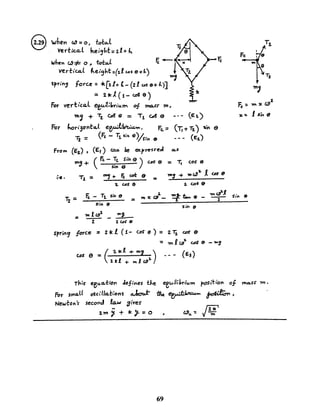 2.29
When ω = 0, total
vertical height = 2l + h
When ω ≠ 0, total
vertical height = (2l cos θ + h)
spring force = k[2l + h - (2l cos θ + h)]
= 2kl (1 - cos θ)
For vertical equilibrium of mass m,
mg + T₂ cos θ = T₁ cos θ --- (E₁)
For horizontal equilibrium, Fc = (T₁ + T₂) sin θ
T₁ = (Fc - T₂ sin θ)/sin θ --- (E₂)
From (E₂), (E₁) can be expressed as
mg + ((Fc - T₁ sin θ)/sin θ) cos θ = T₁ cos θ
i.e. T₁ = (mg + Fc cot θ)/(2 cos θ) = (mg + mω² l cos θ)/(2 cos θ)
spring force = 2kl (1 - cos θ) = 2 T₂ cos θ
= mlω² cos θ - mg
cos θ = ((2kl + mg)/(2kl + mlω²)) --- (E₃)
This equation defines the equilibrium position of mass m.
For small oscillations about the equilibrium position,
Newton's second law gives
2mÿ + ky = 0 ,
T₁
T₂
Fc
mg
Fc = m x ω²
x = l sin θ
69